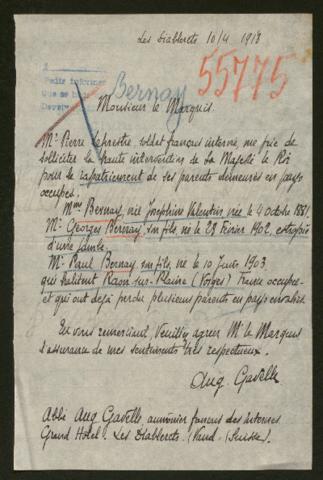 Les Diablerets 10/4 1918
Bernay
55775
Monsieur le Marquis.
Mr Pierre Lefrestre, soldat français interné, me prie de
solliciter la haute intervention de Sa Majesté le Roi
pour le rapatriement de ses parents demeurés en pays
occupés.
Mme Bernay, née Joséphine Valentin, née le 4 Octobre 1881.
Mr Georges Bernay, son fils, né le 28 Février 1902, estropié
d'une jambe.
Mr Paul Bernay, son fils, né le 10 1903
qui habitent Raon-sur-Plaine (Vosges) France occupée
et qui ont déjà perdu plusieurs parents en pays envahis.
En vous remerciant, Veuillez agréer Mr le Marquis
l'assurance de mes sentiments très respectueux.
Aug Gavelle
Abbé Aug Gavelle, aumônier français des Internés
Grand Hôtel. Les Diablerets. (Vaud. (Suisse).